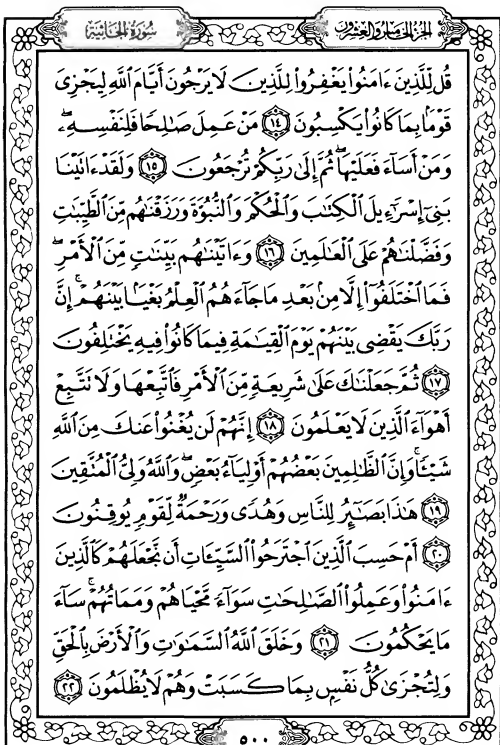 سُورَةُ الْجَاثِيَةِ
الجُزْءُ الخَامِسُ وَالعِشْرُونَ
قُل لِّلَّذِينَ ءَامَنُوا۟ يَغْفِرُوا۟ لِلَّذِينَ لَا يَرْجُونَ أَيَّامَ ٱللَّهِ لِيَجْزِىَ
قَوْمًۢا بِمَا كَانُوا۟ يَكْسِبُونَ ١٤ مَنْ عَمِلَ صَٰلِحًا فَلِنَفْسِهِۦ ۖ
وَمَنْ أَسَآءَ فَعَلَيْهَا ۖ ثُمَّ إِلَىٰ رَبِّكُمْ تُرْجَعُونَ ١٥ وَلَقَدْ ءَاتَيْنَا
بَنِىٓ إِسْرَٰٓءِيلَ ٱلْكِتَٰبَ وَٱلْحُكْمَ وَٱلنُّبُوَّةَ وَرَزَقْنَٰهُم مِّنَ ٱلطَّيِّبَٰتِ
وَفَضَّلْنَٰهُمْ عَلَى ٱلْعَٰلَمِينَ ١٦ وَءَاتَيْنَٰهُم بَيِّنَٰتٍ مِّنَ ٱلْأَمْرِ ۖ
فَمَا ٱخْتَلَفُوٓا۟ إِلَّا مِنۢ بَعْدِ مَا جَآءَهُمُ ٱلْعِلْمُ بَغْيًۢا بَيْنَهُمْ ۚ إِنَّ
رَبَّكَ يَقْضِى بَيْنَهُمْ يَوْمَ ٱلْقِيَٰمَةِ فِيمَا كَانُوا۟ فِيهِ يَخْتَلِفُونَ
١٧ ثُمَّ جَعَلْنَٰكَ عَلَىٰ شَرِيعَةٍ مِّنَ ٱلْأَمْرِ فَٱتَّبِعْهَا وَلَا تَتَّبِعْ
أَهْوَآءَ ٱلَّذِينَ لَا يَعْلَمُونَ ١٨ إِنَّهُمْ لَن يُغْنُوا۟ عَنكَ مِنَ ٱللَّهِ
شَيْـًٔا ۚ وَإِنَّ ٱلظَّٰلِمِينَ بَعْضُهُمْ أَوْلِيَآءُ بَعْضٍ ۖ وَٱللَّهُ وَلِىُّ ٱلْمُتَّقِينَ
١٩ هَٰذَا بَصَٰٓئِرُ لِلنَّاسِ وَهُدًى وَرَحْمَةٌ لِّقَوْمٍ يُوقِنُونَ
٢٠ أَمْ حَسِبَ ٱلَّذِينَ ٱجْتَرَحُوا۟ ٱلسَّيِّـَٔاتِ أَن نَّجْعَلَهُمْ كَٱلَّذِينَ
ءَامَنُوا۟ وَعَمِلُوا۟ ٱلصَّٰلِحَٰتِ سَوَآءً مَّحْيَاهُمْ وَمَمَاتُهُمْ ۚ سَآءَ
مَا يَحْكُمُونَ ٢١ وَخَلَقَ ٱللَّهُ ٱلسَّمَٰوَٰتِ وَٱلْأَرْضَ بِٱلْحَقِّ
وَلِتُجْزَىٰ كُلُّ نَفْسٍۭ بِمَا كَسَبَتْ وَهُمْ لَا يُظْلَمُونَ ٢٢
٥٠٠